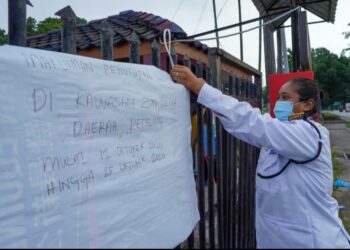 MAKLUMAN PENUTUPAN
DI KAWASAN ZON
DAERAH, PETALING
MULAI 12 OKTOBER 2020
HINGGA 25 OKTOBER 2020